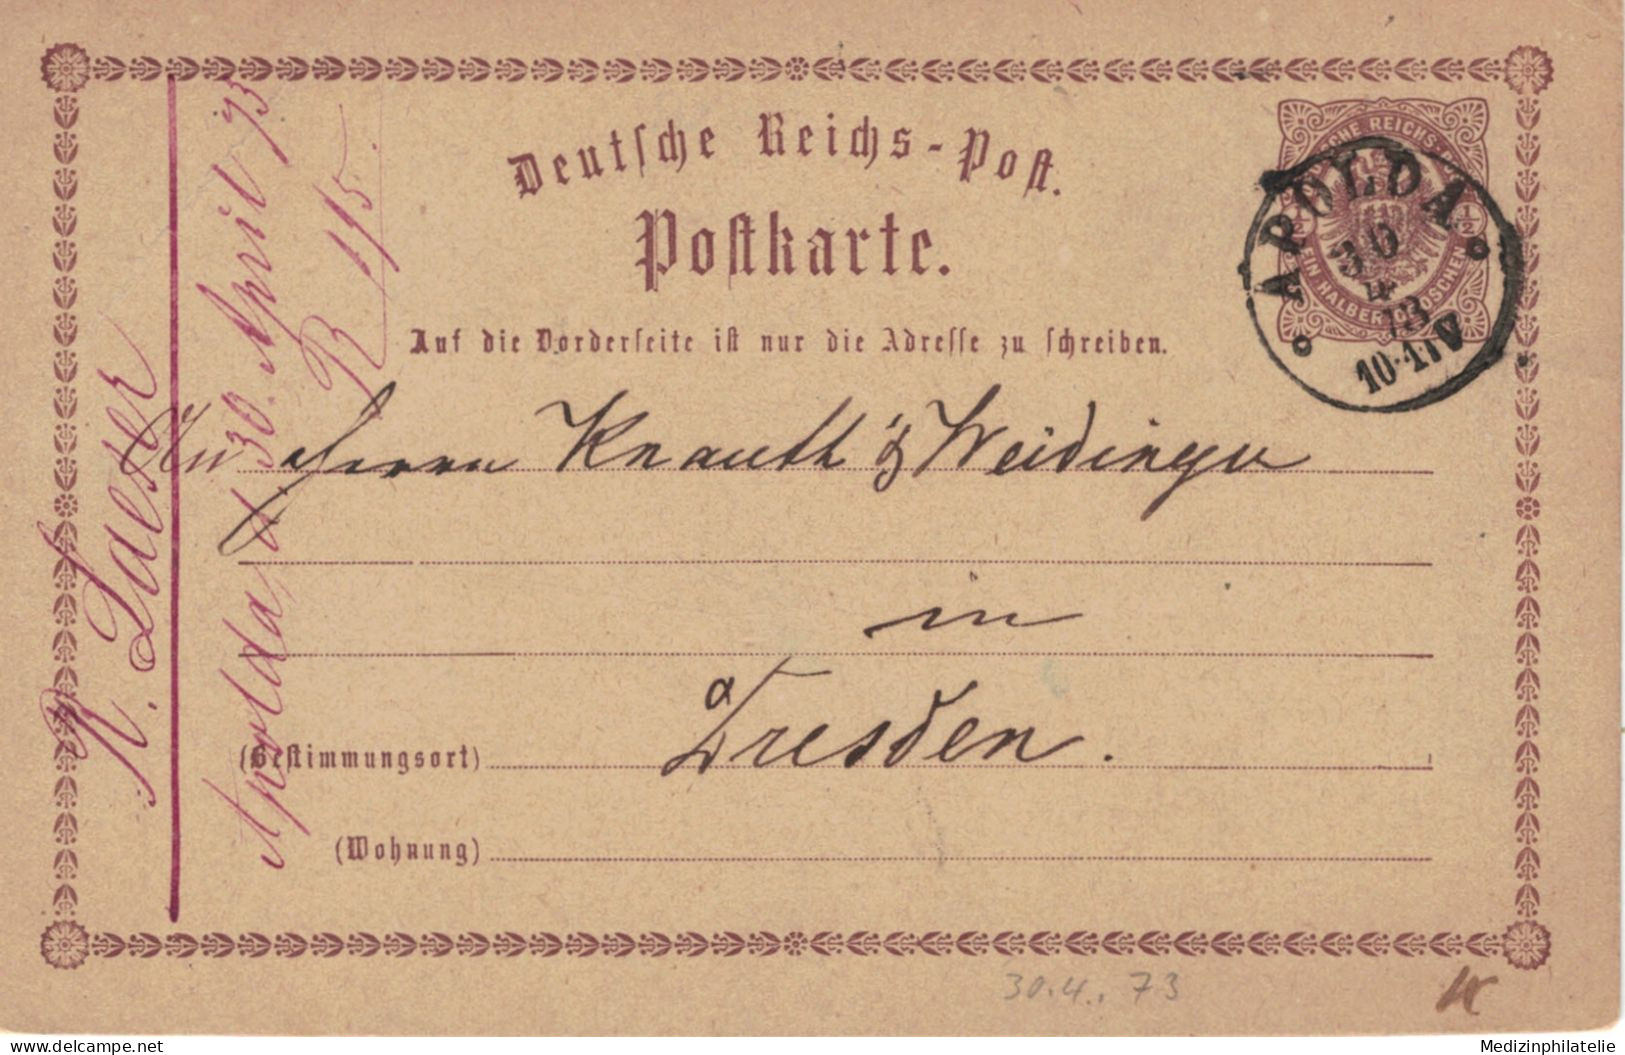 Deutsche Reichs-Post.
Postkarte.
Auf die Vorderseite ist nur die Adresse zu schreiben.
DEUTSCHE REICHS-POST
½ ½
EIN HALBER GROSCHEN
APOLDA
30
IV
73
10-11 V
An Herrn Knauth & Weidinger
in
Dresden.
(Bestimmungsort)
(Wohnung)
R. Laeser
Apolda, d 30. April 73
R 1/5.
30.4. 73
delcampe.net
Medizinphilatelie